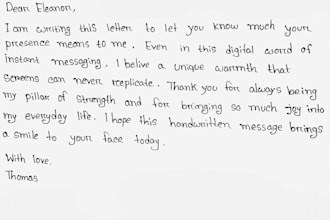 Dear Eleanor,
I am writing this letter to let you know much your
presence means to me. Even in this digital world of
instant messaging, I belive a unique warmth that
screens can never replicate. Thank you for always being
my pillar of strength and for bringing so much joy into
my everyday life. I hope this handwritten message brings
a smile to your face today.
With love,
Thomas